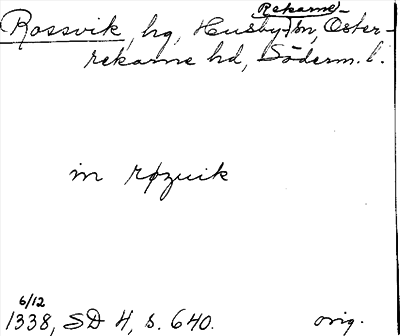 Rekarne-
Rossvik, hg, Husby-sn, Öster-
rekarne hd, Söderm. l.
in røzuik
6/12
1338, SD 4, s. 640. orig.